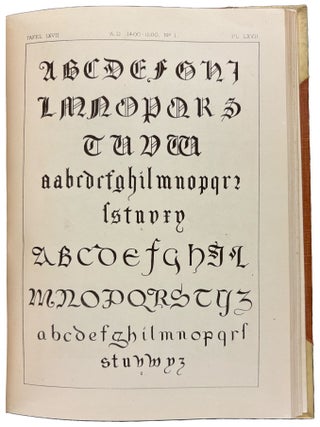 TAFEL LXVII A.D. 1400-1500. Nº 1. PL. LXVII
A B C D E F G H I
L M N O P Q R S
T U V W
a a b c d e f g h i l m n o p q r ꝛ
ſ s t u v x y
A B C D E F G H I L
M N O P Q R S T Y Z
a b c d e f g h i l m n o p q r ſ
s t u v w y z